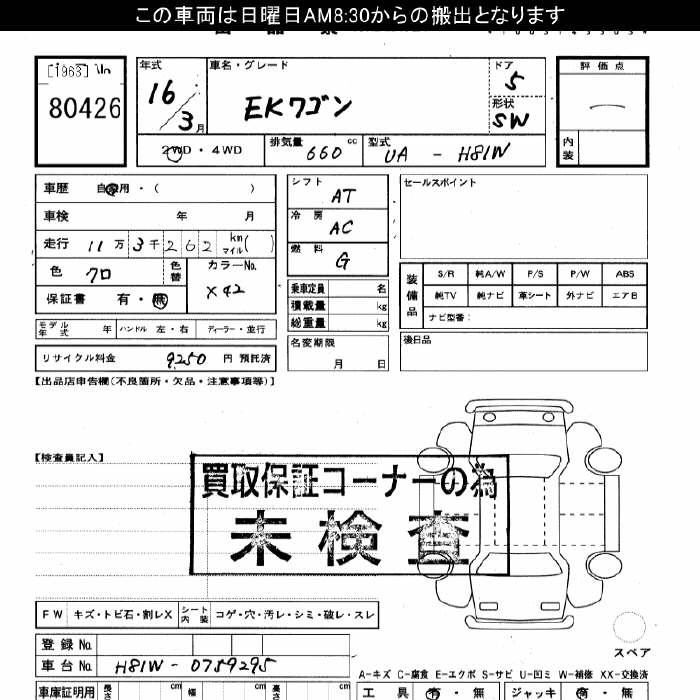 この車両は日曜日AM8:30からの搬出となります
[1963]
80426
年式 16 / 3 月
車名・グレード
EKワゴン
ドア 5
形状 SW
評価点
内装
2WD・4WD
排気量 660 cc
型式 UA - H81W
車歴 自家用・( )
車検 年 月
走行 11万3千262 km マイル( )
色 クロ 色替
カラーNo. X42
保証書 有・無
シフト AT
冷房 AC
燃料 G
乗車定員 名
積載量 kg
総重量 kg
セールスポイント
装備品
S/R 純A/W P/S P/W ABS
純TV 純ナビ 革シート 外ナビ エアB
ナビ型番:
モデル年式 年 ハンドル 左・右 ディーラー・並行
名変期限
月 日
後日品
リサイクル料金 9250 円 預託済
【出品店申告欄(不良箇所・欠品・注意事項等)】
【検査員記入】
買取保証コーナーの為
未検査
FW キズ・トビ石・割レX シート内装 コゲ・穴・汚レ・シミ・破レ・スレ
スペア
登録No.
車台No. H81W - 0759295
A-キズ C-腐食 E-エクボ S-サビ U-凹ミ W-補修 XX-交換済
車庫証明用 長さ cm 幅 cm 高さ cm
工具 有・無 ジャッキ 有・無